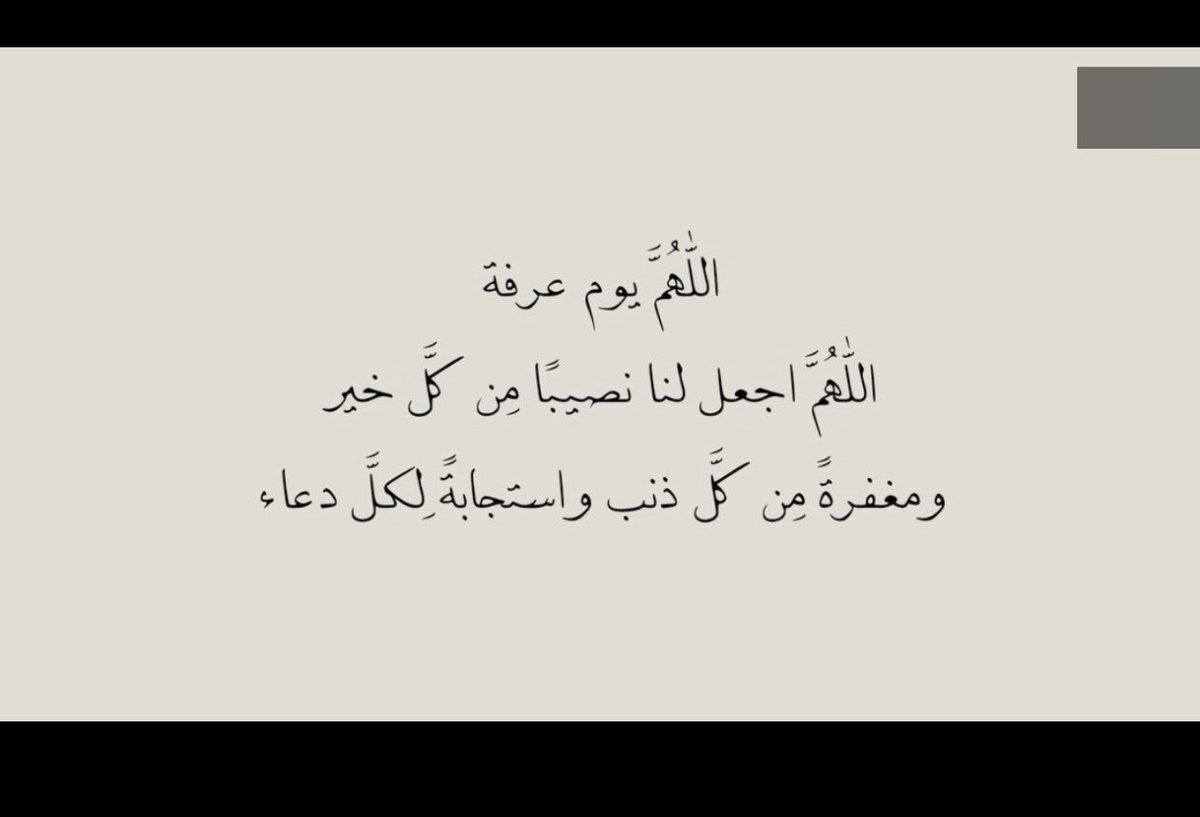 اللّٰهُمَّ يوم عرفة
اللّٰهُمَّ اجعل لنا نصيبًا مِن كلَّ خير
ومغفرةً مِن كلَّ ذنب واستجابةً لِكلَّ دعاء